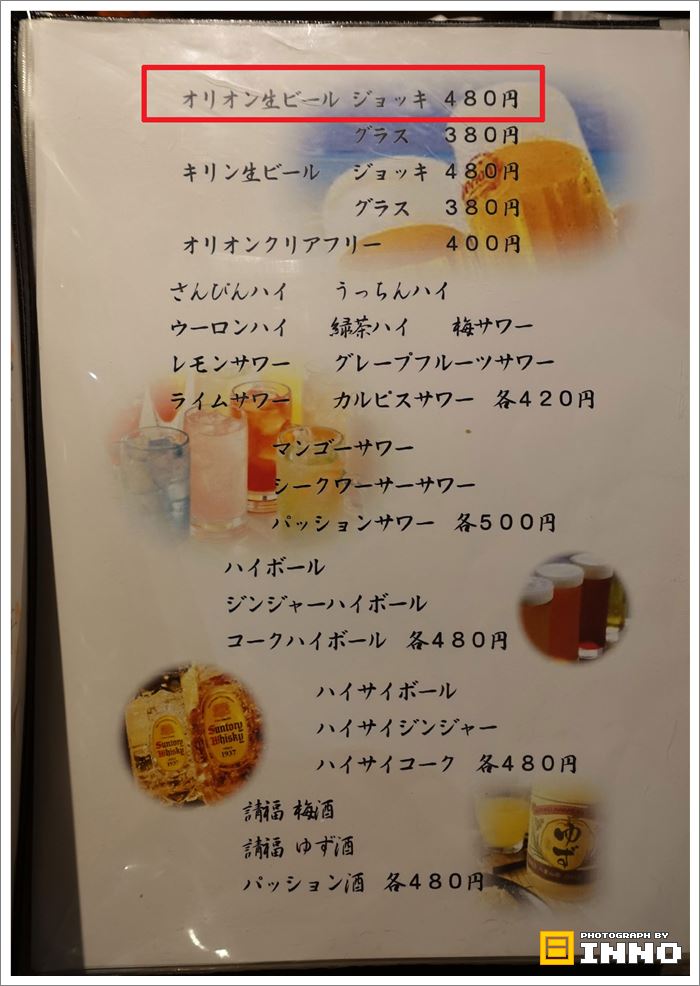 オリオン生ビール ジョッキ 480円
グラス 380円
キリン生ビール ジョッキ 480円
グラス 380円
オリオンクリアフリー 400円
さんぴんハイ うっちんハイ
ウーロンハイ 緑茶ハイ 梅サワー
レモンサワー グレープフルーツサワー
ライムサワー カルピスサワー 各420円
マンゴーサワー
シークワーサーサワー
パッションサワー 各500円
ハイボール
ジンジャーハイボール
コークハイボール 各480円
ハイサイボール
ハイサイジンジャー
ハイサイコーク 各480円
Suntory Whisky 1937
Suntory Whisky 1937
請福 梅酒
請福 ゆず酒
パッション酒 各480円
ゆず
PHOTOGRAPH BY
INNO